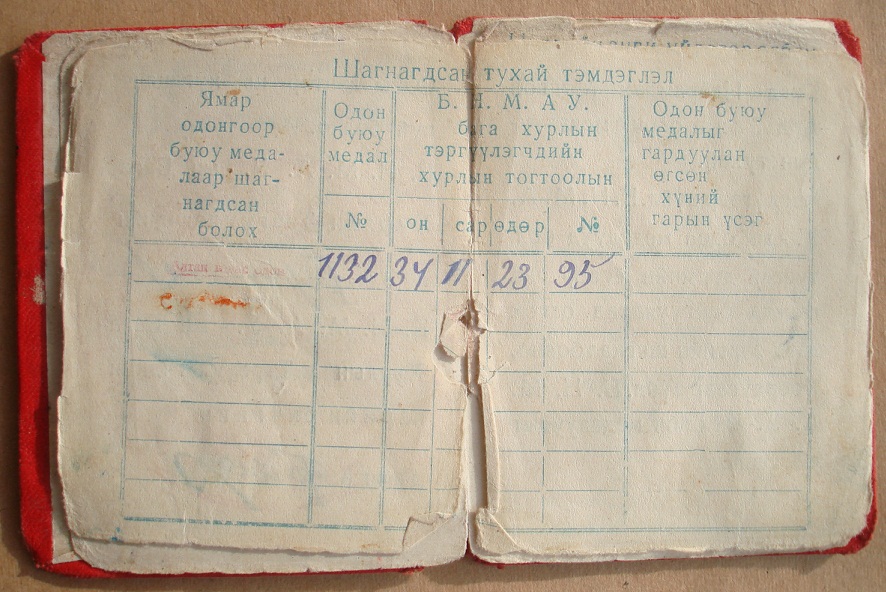 Шагнагдсан тухай тэмдэглэл
Ямар
одонгоор
буюу меда-
лаар шаг-
нагдсан
болох
Одон
буюу
медал
№
Б. Н. М. А У.
бага хурлын
тэргүүлэгчдийн
хурлын тогтоолын
он сар өдөр №
Одон буюу
медалыг
гардуулан
өгсөн
хүний
гарын үсэг
1132 34 11 23 95